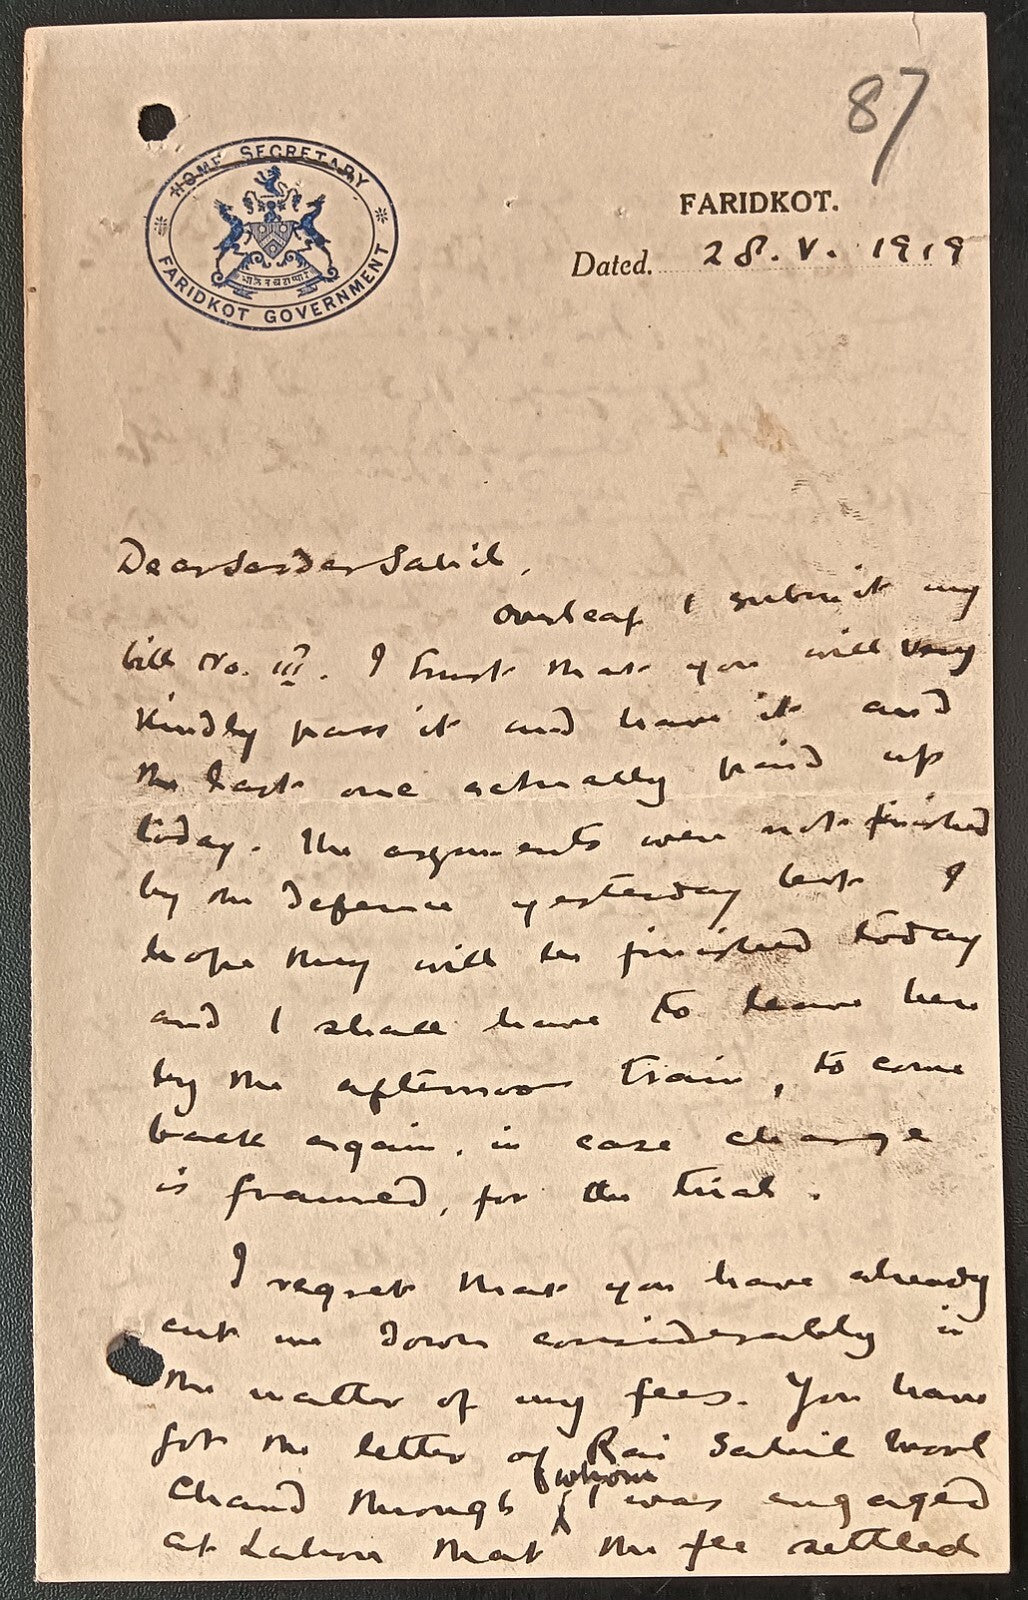 87
HOME SECRETARY
FARIDKOT GOVERNMENT
FARIDKOT.
Dated. 28. V. 1919
Dear Sardar Sahib,
Overleaf I submit my
bill No. III. I trust that you will very
kindly pass it and have it and
the last one actually paid up
today. The arguments were not finished
by the defence yesterday but I
hope they will be finished today
and I shall have to leave here
by the afternoon train, to come
back again, in case charge
is framed, for the trial.
I regret that you have already
cut me down considerably in
the matter of my fees. You have
got the letter of Rai Sahib Mool
Chand through whom I was engaged
at Lahore that the fee settled